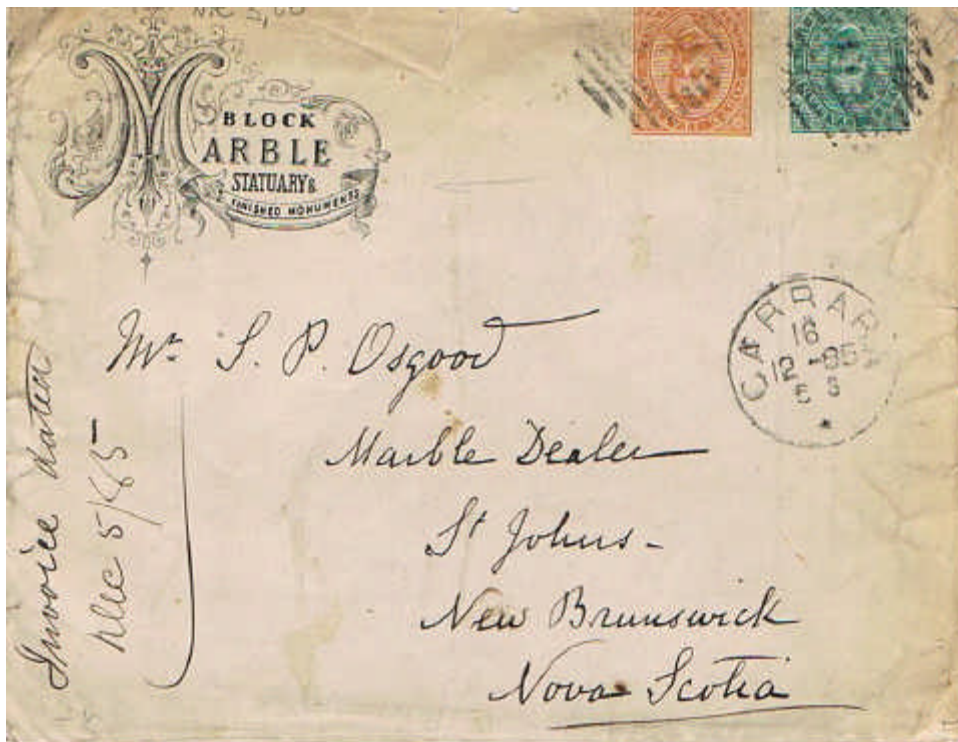 BLOCK
MARBLE
STATUARY &
FINISHED MONUMENTS
CARRARA
16
12 - 85
5 S
Mr. S. P. Osgood
Marble Dealer
St Johns -
New Brunswick
Nova Scotia
Invoice dated
Dec 5/85